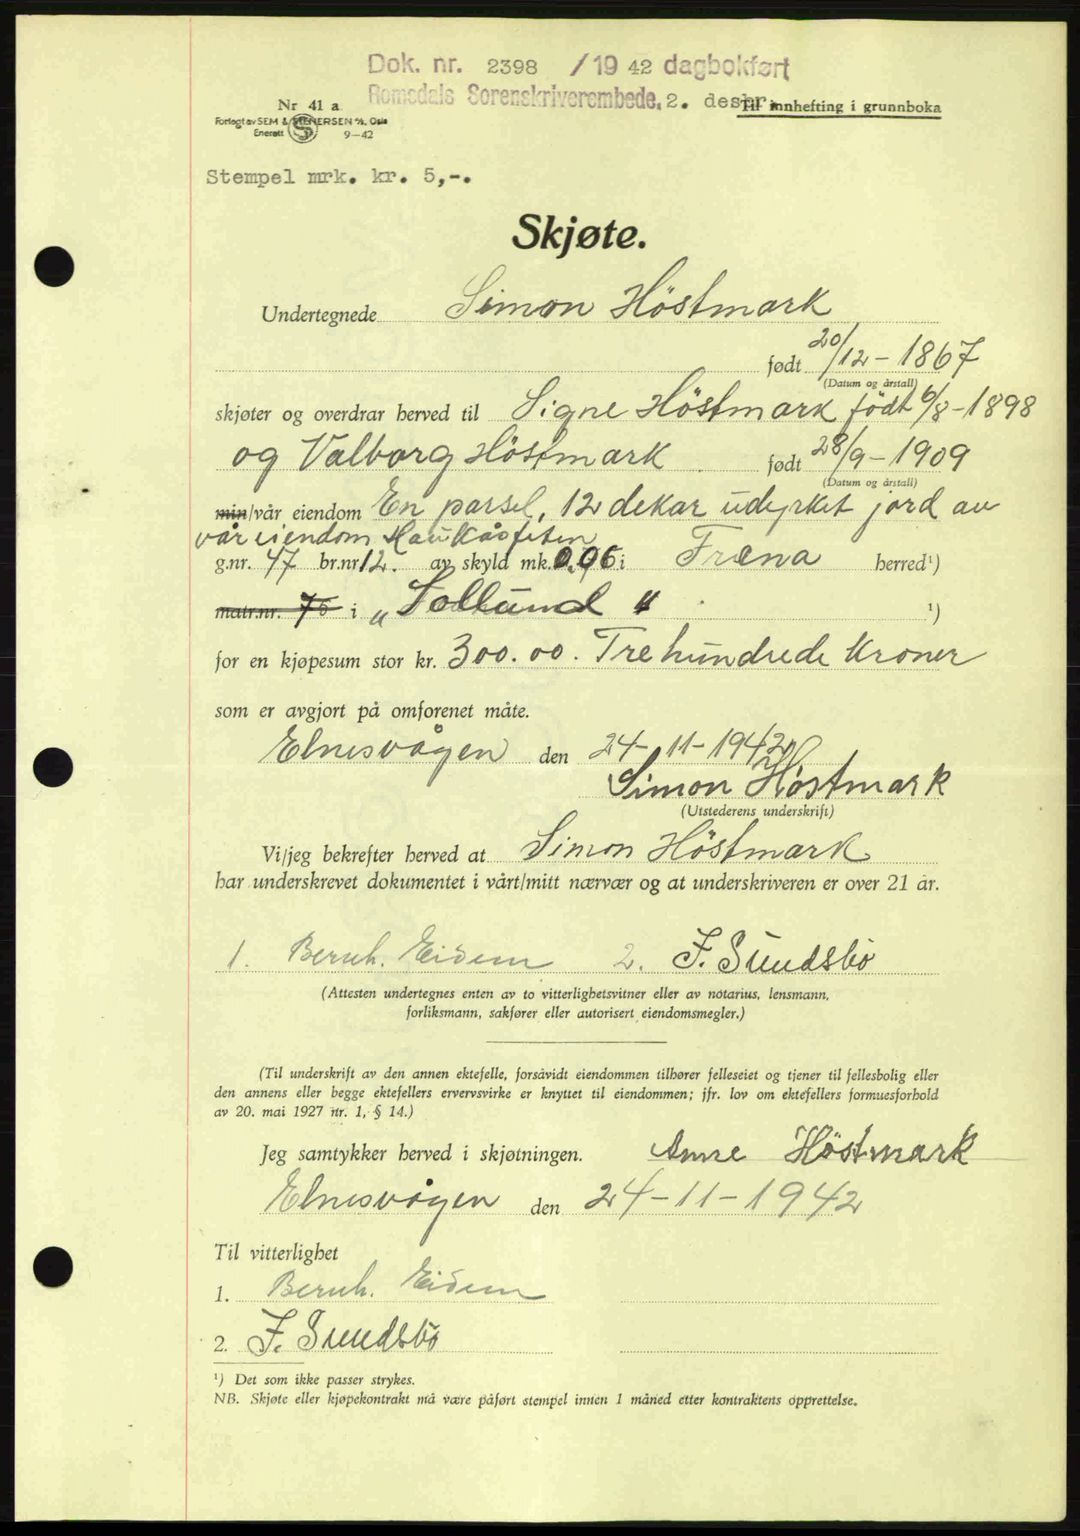 Dok. nr. 2398 /19 42 dagbokført
Romsdals Sorenskriverembede, 2. desbr.
Nr 41 a
Til innhefting i grunnboka
Forlagt av SEM & STENERSEN A/S, Oslo
Enerett
9–42
Stempel mrk. kr. 5,-.
Skjøte.
Undertegnede Simon Höstmark
født 20/12 – 1867
(Datum og årstall)
skjøter og overdrar herved til Signe Höstmark født 6/8 – 1898
og Valborg Höstmark født 28/9 – 1909
(Datum og årstall)
min/vår eiendom En parsel, 12 dekar udyrket jord av
vår eiendom Haukåsfleten
g.nr. 47 br.nr 12. av skyld mk. 0.06 i Fræna herred¹)
matr.nr. 76 i „Sollund" ¹)
for en kjøpesum stor kr. 300.00. Trehundrede Kroner
som er avgjort på omforenet måte.
Elnesvågen den 24-11-1942
Simon Höstmark
(Utstederens underskrift)
Vi/jeg bekrefter herved at Simon Höstmark
har underskrevet dokumentet i vårt/mitt nærvær og at underskriveren er over 21 år.
1. Bernh. Eidem 2. F. Sundsbö
(Attesten undertegnes enten av to vitterlighetsvitner eller av notarius, lensmann,
forliksmann, sakfører eller autorisert eiendomsmegler.)
(Til underskrift av den annen ektefelle, forsåvidt eiendommen tilhører felleseiet og tjener til fellesbolig eller
den annens eller begge ektefellers ervervsvirke er knyttet til eiendommen; jfr. lov om ektefellers formuesforhold
av 20. mai 1927 nr. 1, § 14.)
Jeg samtykker herved i skjøtningen. Anne Höstmark
Elnesvågen den 24-11-1942
Til vitterlighet
1. Bernh. Eidem
2. F. Sundsbö
¹) Det som ikke passer strykes.
NB. Skjøte eller kjøpekontrakt må være påført stempel innen 1 måned etter kontraktens opprettelse.